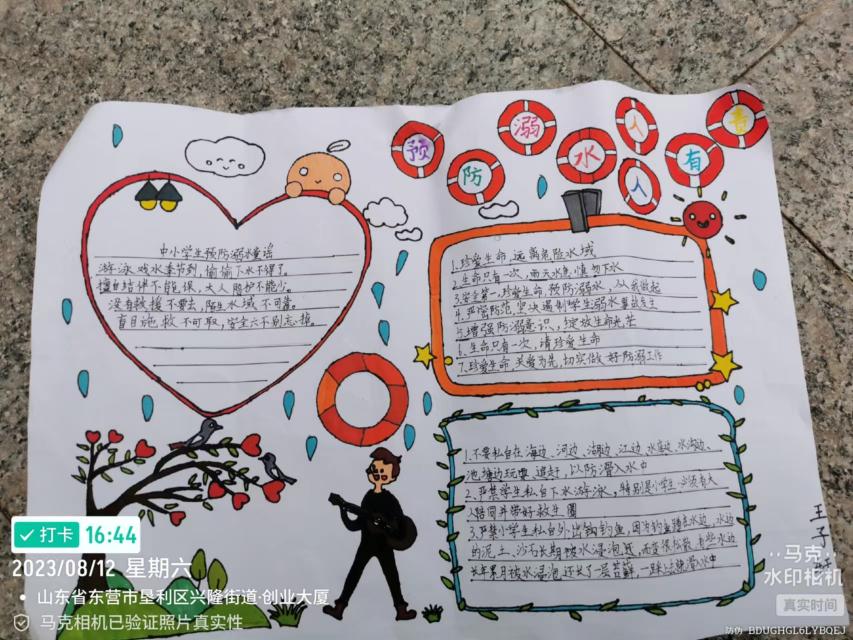 预防溺水人人有责
中小学生预防溺水童谣
游泳戏水季节到,偷偷下水不得了。
擅自结伴不能保,大人陪护不能少。
没有救援不要去,陌生水域不可靠。
盲目施救不可取,安全六不别忘掉。
1.珍爱生命,远离危险水域
2.生命只有一次,雨天水急,慎勿下水
3.安全第一,珍爱生命,预防溺水,从我做起
4.严管防范,坚决遏制学生溺水事故发生
5.增强防溺意识,绽放生命光芒
生命只有一次,请珍爱生命
7.珍爱生命,关爱为先,切实做好防溺工作
1.不要私自在海边、河边、湖边、江边、水库边、水沟边、
池塘边玩耍、追赶,以防滑入水中
2.严禁学生私自下水游泳,特别是小学生必须有大
人陪同并带好救生圈
3.严禁小学生私自外出钓鱼,因为钓鱼蹲在水边,水边
的泥土、沙石长期被水浸泡,而变得松散,有些水边
长年累月被水浸泡还长了一层苔藓,一踩上就滑入水中
王子
打卡 16:44
2023/08/12 星期六
山东省东营市垦利区兴隆街道·创业大厦
马克相机已验证照片真实性
马克
水印相机
真实时间
防伪 BDUGHGL6LYBQEJ